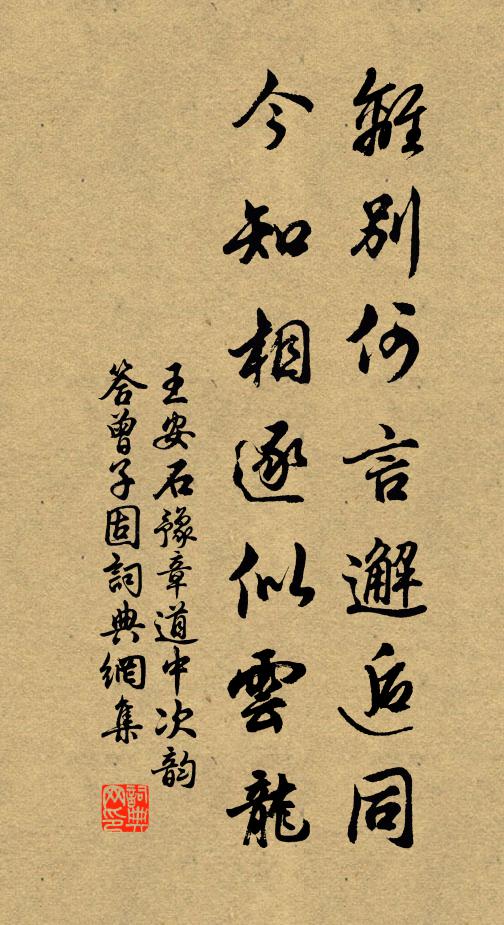 離別何言邂逅同
今知相逐似雲龍
王安石豫章道中次韵
答曾子固詞典網集
詞典
网印